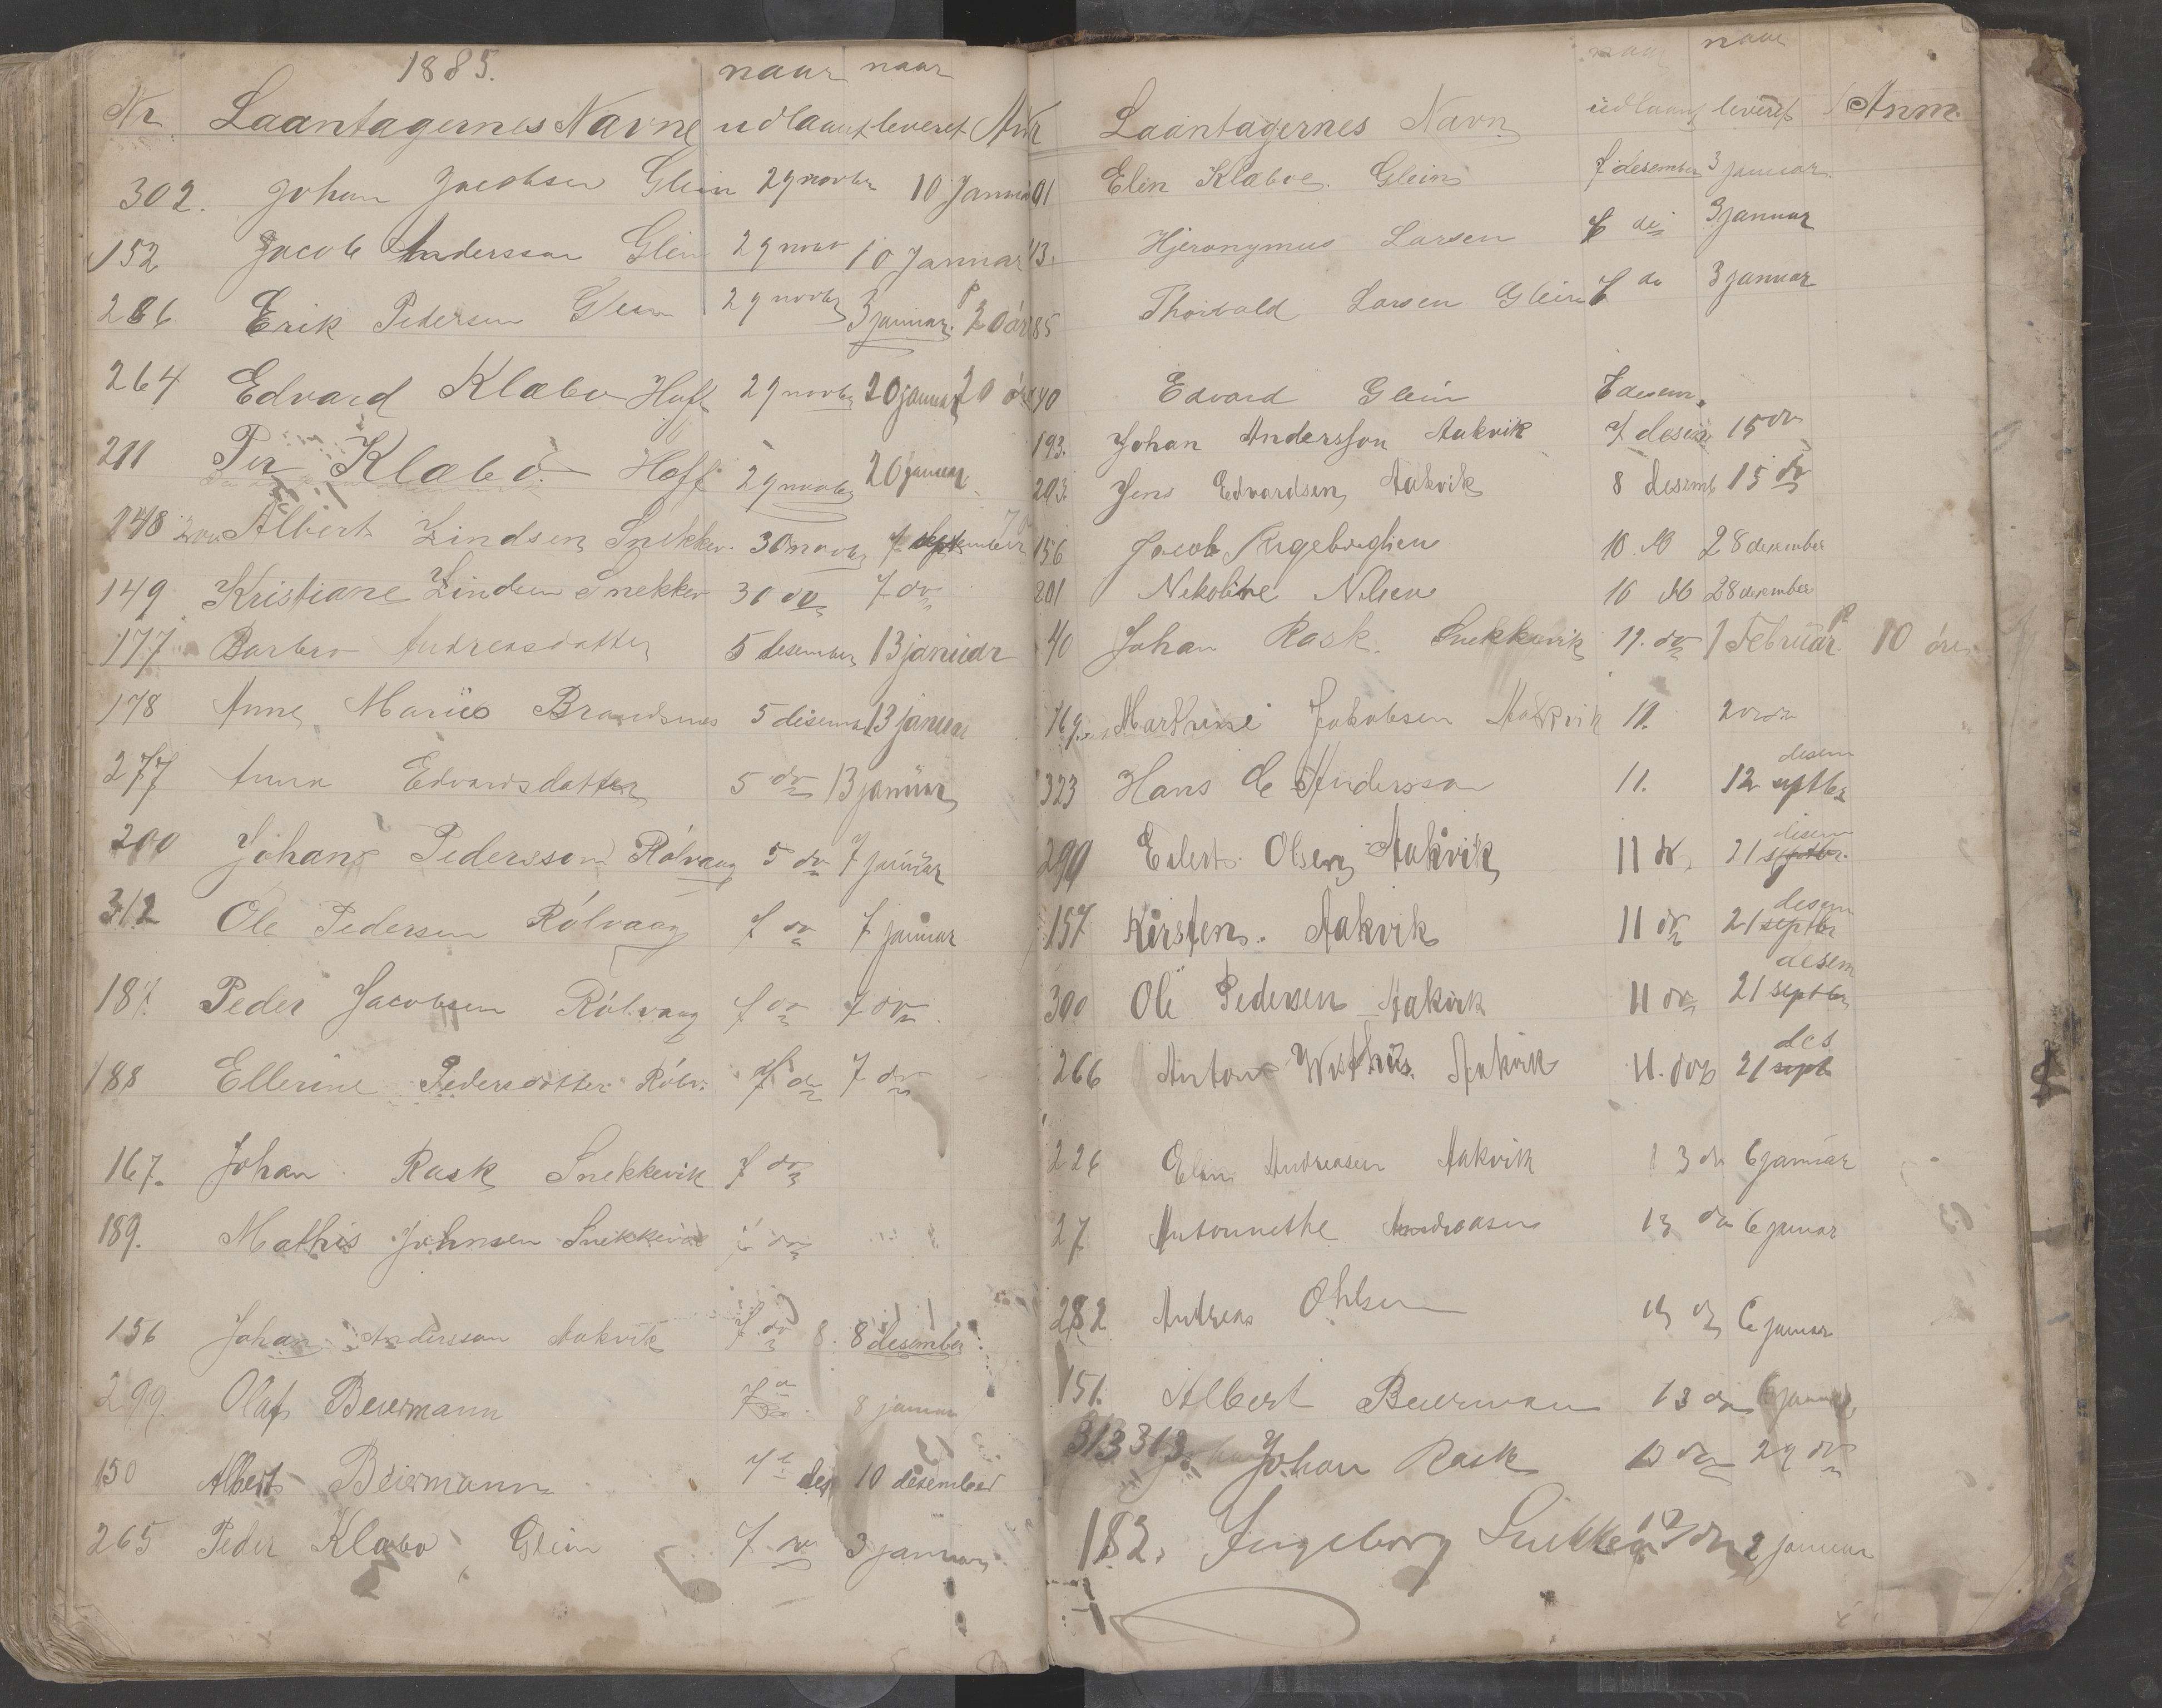 1885.
naar naar
Nr Laantagernes Navne udlaant leveret
302. Johan Jacobsen Glein 29 novbr 10 Januar
152 Jacob Anderssen Glein 29 nov 10 Januar
286 Erik Pedersen Glein 29 novbr 3 januar. 20 ór
264 Edvard Klæbo Hoff 29 novbr 20 januar 20 ór
211 Per Klæbo. Hoff 29 novbr 20 januar
248 Albert Zindsen Snekkev. 30 novbr 7
149 Kristiane Zindsen Snekkev 30 do 7 do
177 Barbro Andreasdatter 5 desember 13 januar
178 Anne Marie 5 desem 13 januar
277 Anna Edvardsdatter 5 do 13 januar
200 Johans Pederssen Rólvaag 5 do 7 januar
312 Ole Pedersen Rólvaag 7 do 7 januar
187. Peder Jacobsen Rólvaag 7 do 7 do
188 Ellerine Pedersdatter Rólv. 7 do 7 do
167. Johan Rask Snekkevik 7 do
189. Mathis Johnsen Snekkevik do
156 Johan Anderssen Aakvik 7 do 8 8 desember
299. Olaf Beiermann 7 8 januar
150 Albert Beiermann 7 des 10 desember
265 Peder Klæbo Glein 7 do 3 januar
naar naar
Laantagernes Navn udlaant leveret Anm.
Elen Klæboe. Glein 7 desember 3 januar
13. Hjeronymus Larsen 3 januar
85 Thorvald Larsen Glein 7 do 3 januar
Edvard Glein 7 desem.
193. Johan Andersson Aakvik 7 desem 15 do
293. Jens Edvardsen Aakvik 8 desemb 15 do
156 Jacob Ingebrigtsen 10 do 28 desember
201 Nekoline Nilsen 10 do 28 desember
40 Johan Rask. Snekkevik 11. do 1 Februar 10 óre
Jakobsen Aakvik 11. 20 do
desem
323 Hans C Anderssen 11. 12 septbr
desem
299 Eilert Olsen Aakvik 11 do 21 septbr.
desem
157 Kirsten. Aakvik 11 do 21 septbr
desem
300 Ole Pedersen Aakvik 11 do 21 septbr
des
266 Anton Aakvik 11. do 21 sept
226 Elen Andreasen Aakvik 13 do 6 januar
27 Antonnethe Andreasen 13 do 6 januar
282 Andreas Ohlsen 13 do 6 januar
151. Albert Beierman 13 do 6 januar
313 313. Johan Rask 13 do 29 do
182. Ingeborg do 2 januar